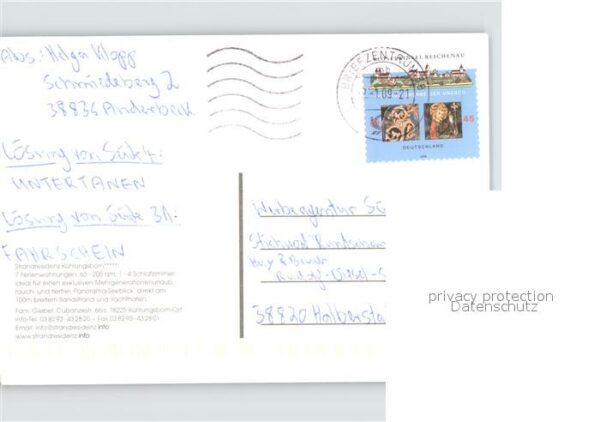 Abs.: Helga Klopp
Schmiedeberg 2
38836 Anderbeck
Lösung von Seite 4:
UNTERTANEN
Lösung von Seite 31:
FAHRSCHEIN
Strandresidenz Kühlungsborn*****
7 Ferienwohnungen, 60 - 205 qm, 1 - 4 Schlafzimmer
ideal für einen exklusiven Mehrgenerationenurlaub,
rauch- und tierfrei. Panorama-Seeblick, direkt am
100m breiten Sandstrand und Yachthafen.
Fam. Giebel, Cubanzestr. 66a, 18225 Kühlungsborn-Ost
Info-Tel. 03 82 93 - 43 28 20 • Fax 03 82 93 - 43 28 01
Email: info@strandresidenz.info
www.strandresidenz.info
BRIEFZENTRUM
1.09-21
INSEL REICHENAU
DER UNESCO
45
DEUTSCHLAND
Werbeagentur
Stichwort
38820 Halbersta
privacy protection
Datenschutz